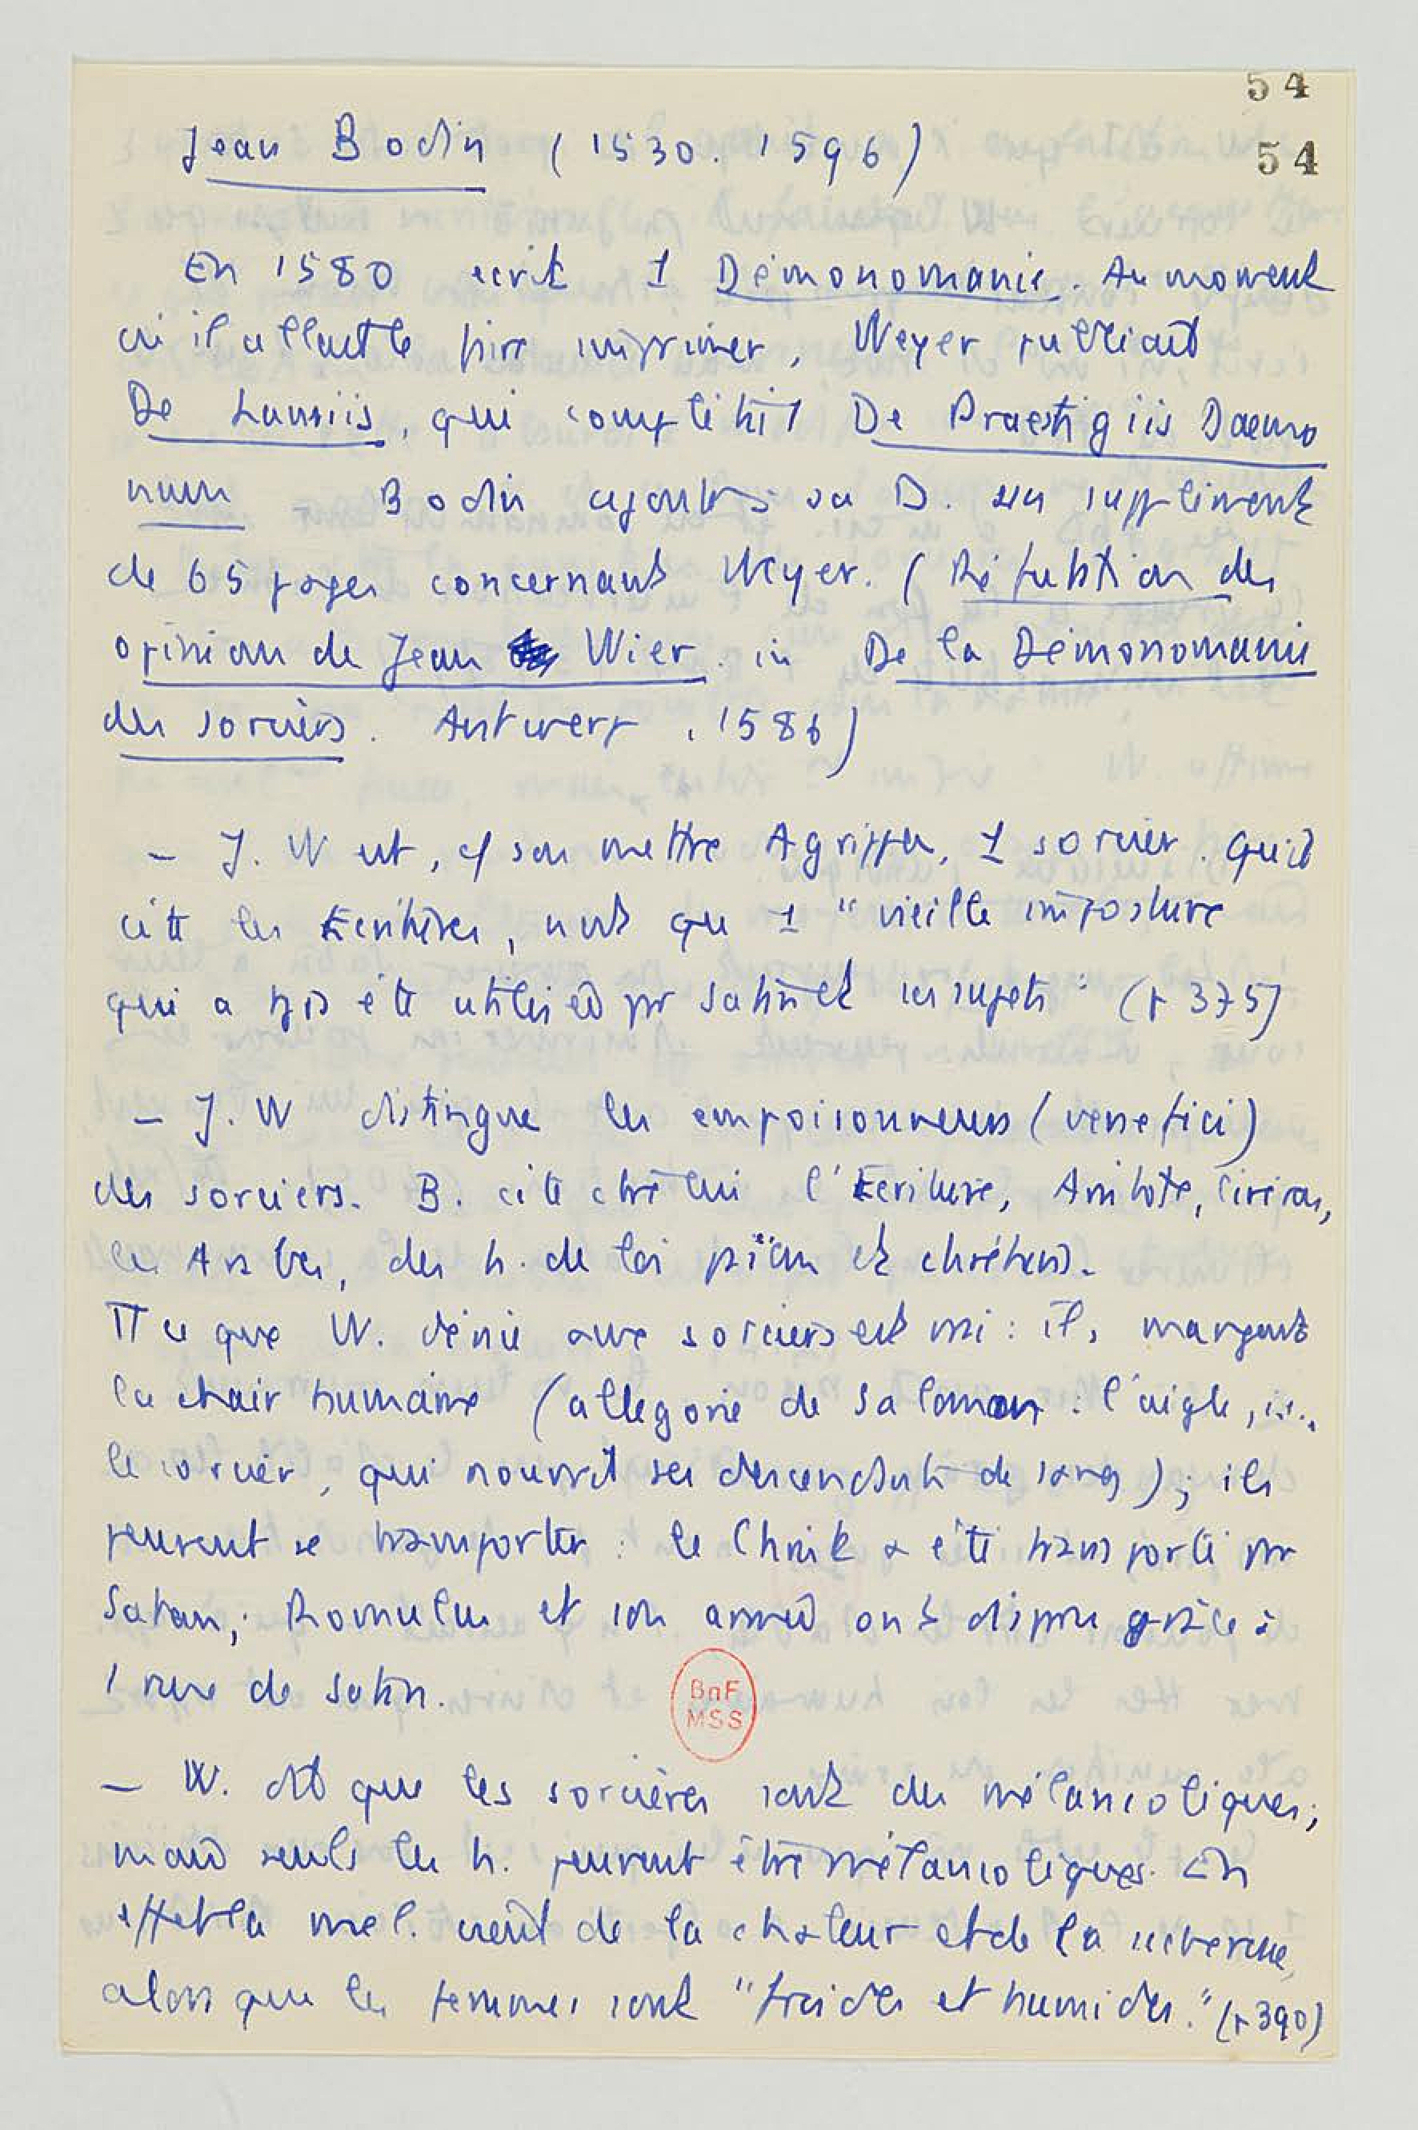 54
54
Jean Bodin (1530. 1596)
En 1580 ecrit 1 Démonomanie. Au moment
où il allait le faire imprimer, Weyer publiait
De Lamiis, qui complétait De Praestigiis Daemo
num Bodin ajoute à sa D. un supplément
de 65 pages concernant Weyer. (Réfutation des
opinions de Jean Wier. in De la Démonomanie
des sorciers. Antwerp, 1586)
– J. W est, cf son maître Agrippa, 1 sorcier. Qu'il
cite les Ecritures, n'est que 1 "vieille imposture
qui a tjs été utilisée pr Satan et ses sujets" (p 375)
– J. W distingue les empoisonneurs (venefici)
des sorciers. B. cite ctre lui l'Ecriture, Aristote, Cicéron,
les Arabes, des h. de loi païens et chrétiens.
Tt ce que W. dénie aux sorciers est vrai : ils mangent
la chair humaine (allégorie de Salomon : l'aigle, i.e.
le sorcier, qui nourrit ses descendants de sang); ils
peuvent se transporter : le Christ a été transporté pr
Satan; Romulus et son armée ont disparu grâce à
1 ruse de Satan.
BnF
MSS
– W. dit que les sorcières sont des mélancoliques;
mais seuls les h. peuvent être mélancoliques. En
effet la mel. vient de la chaleur et de la sécheresse,
alors que les femmes sont "froides et humides." (p 390)